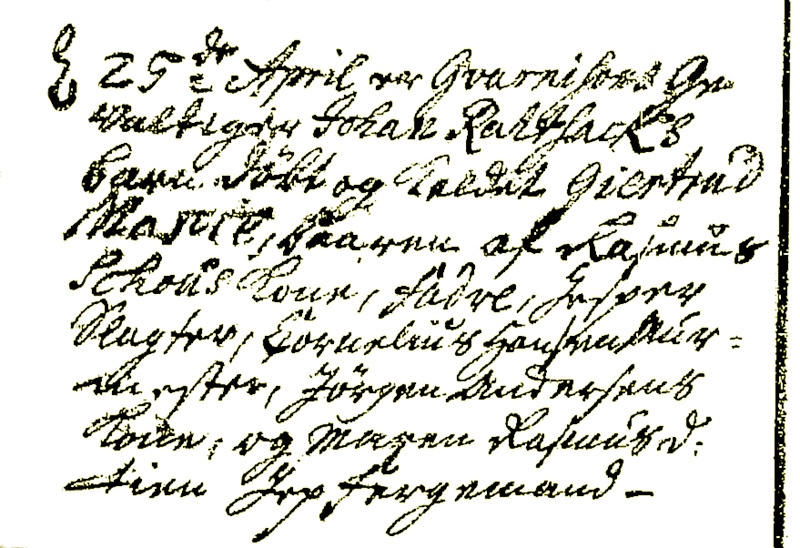 25de April er Gvarnisons Ge
valtiger Johan Raltsack's
barn döbt og kaldet Giertrud
Marie, baaren af Rasmus
Schous Kone, fadre, Jesper
Slagter, Cornelius Hansen Mur-
mester, Jörgen Andersens
Kone, og Maren Rasmusd.
tien Jep fergemand -